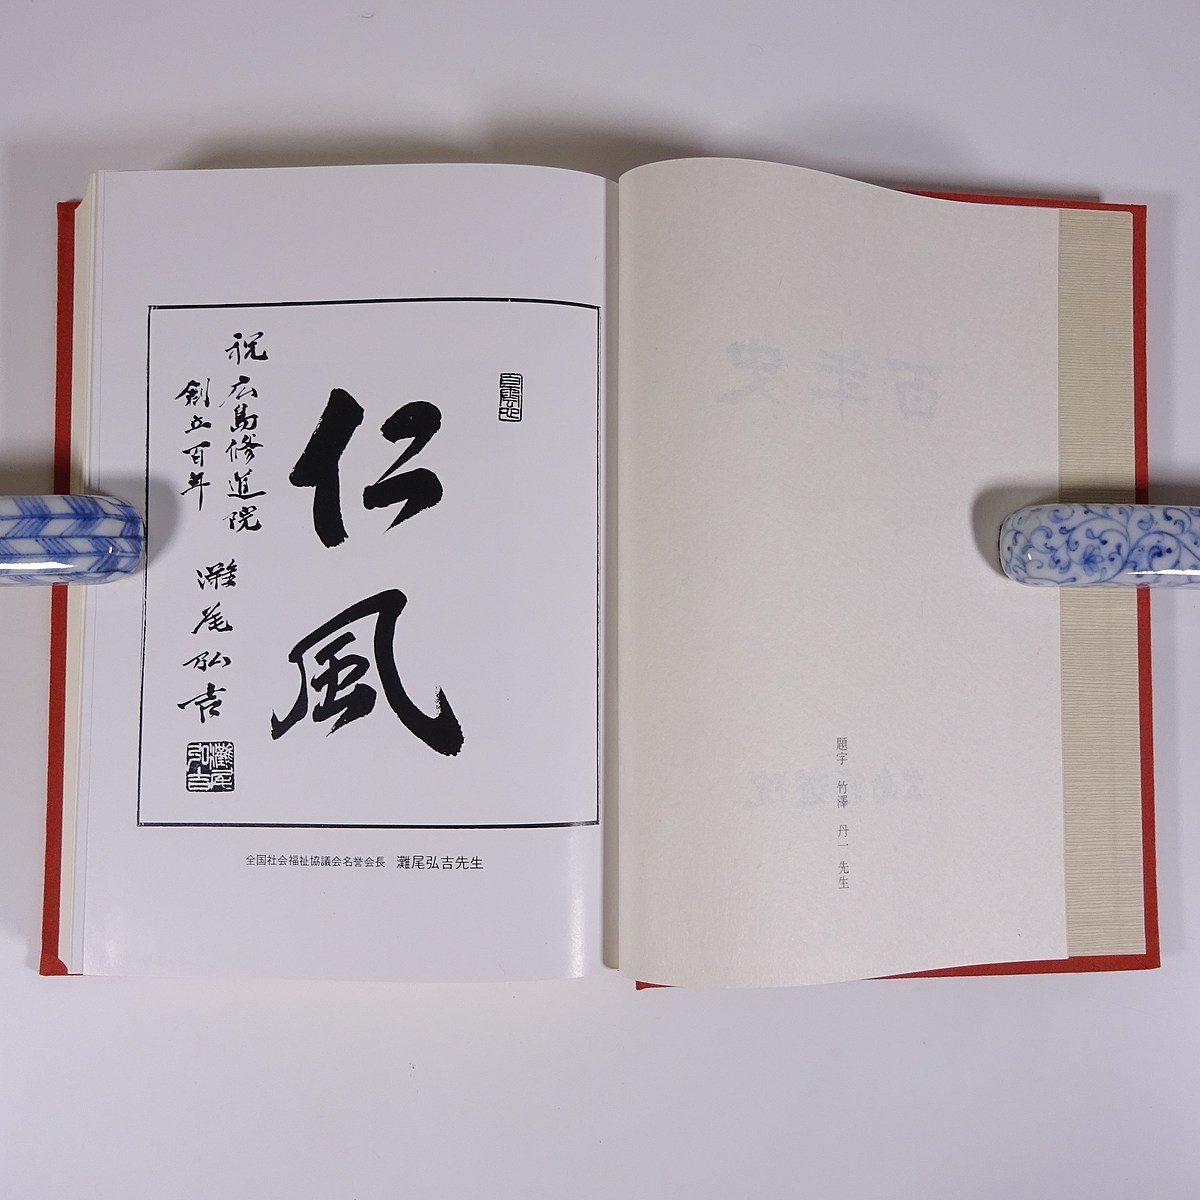 題字　竹澤　丹一　先生
百年史
仁風
祝　広島修道院
創立百年
灘尾弘吉
灘尾弘吉
全国社会福祉協議会名誉会長　灘尾弘吉先生